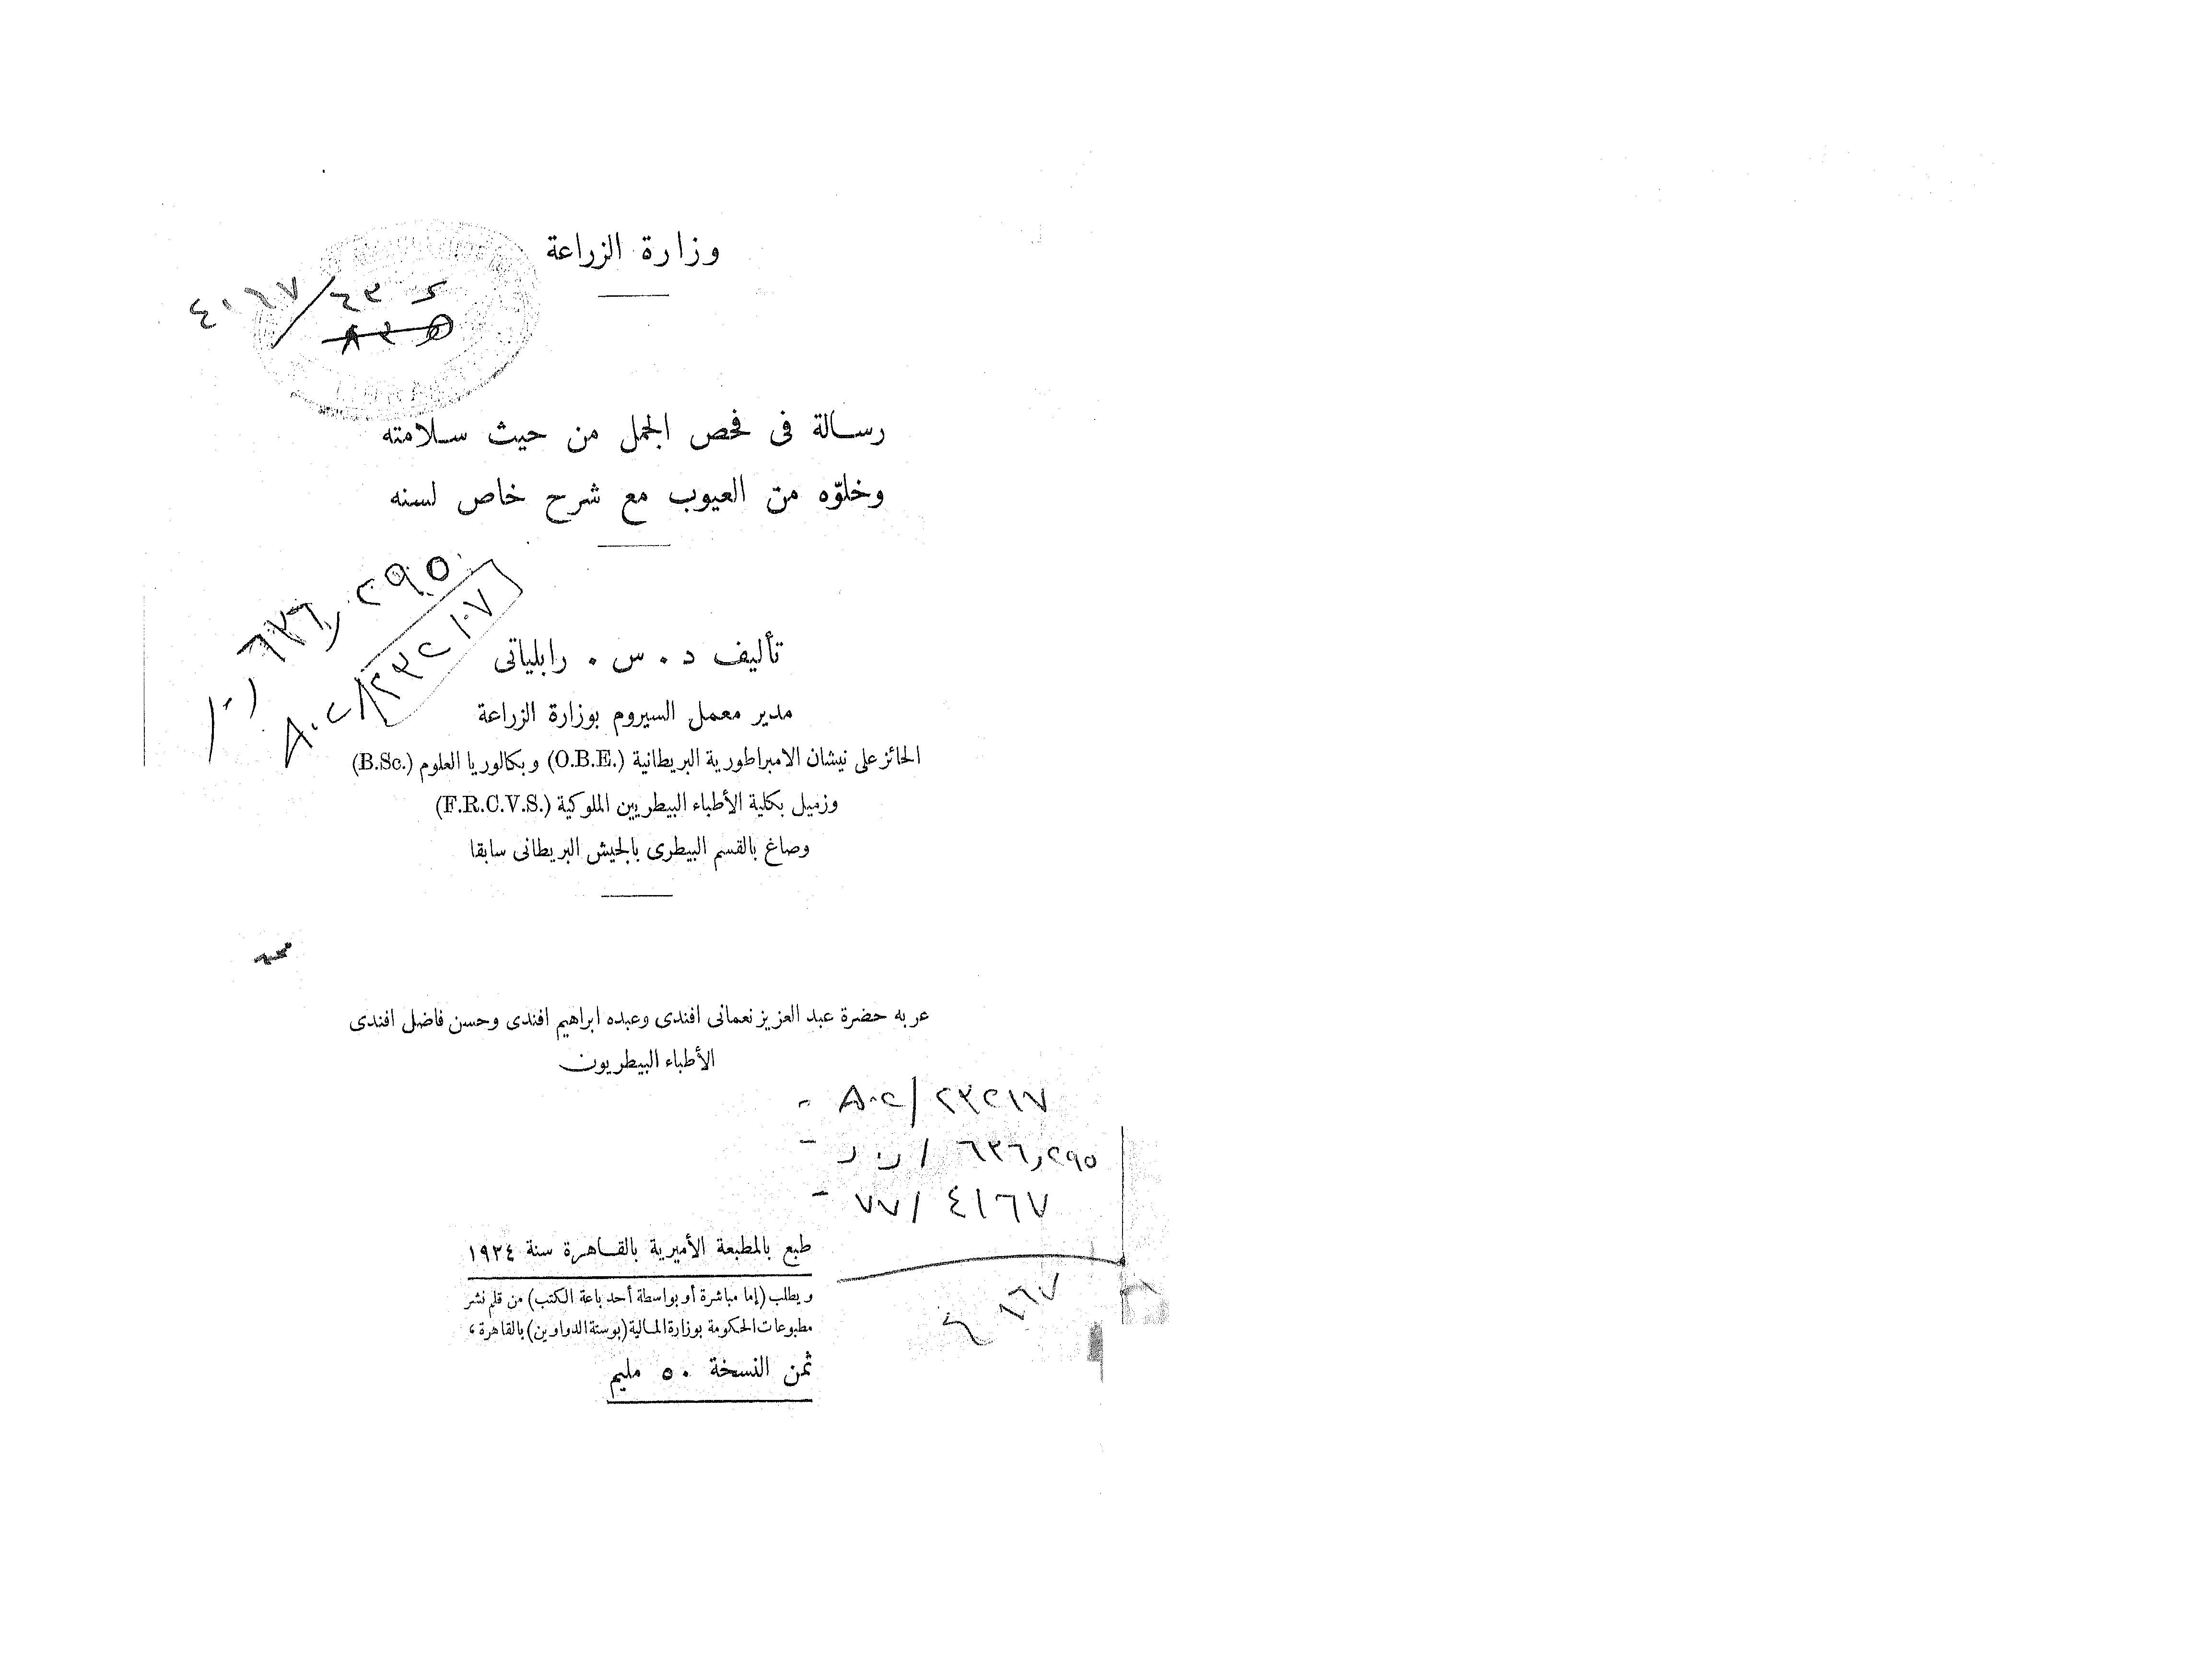 وزارة الزراعة
رسالة فى فحص الجمل من حيث سلامته
وخلوّه من العيوب مع شرح خاص لسنه
٦٣٦٫٢٩٥
٢٣٢١٠٧
تأليف د . س . رابلياتى
مدير معمل السيروم بوزارة الزراعة
الحائز على نيشان الامبراطورية البريطانية (O.B.E.) وبكالوريا العلوم (B.Sc.)
وزميل بكلية الأطباء البيطريين الملوكية (F.R.C.V.S.)
وصاغ بالقسم البيطرى بالجيش البريطانى سابقا
عربه حضرة عبد العزيز نعمانى افندى وعبده ابراهيم افندى وحسن فاضل افندى
الأطباء البيطريون
٨٠٢/٢٣٢١٧ -
/ ٦٣٦٫٢٩٥
٧٧/٤١٦٧ -
طبع بالمطبعة الأميرية بالقاهرة سنة ١٩٣٤
ويطلب (إما مباشرة أو بواسطة أحد باعة الكتب) من قلم نشر
مطبوعات الحكومة بوزارة المالية (بوستة الدواوين) بالقاهرة ،
ثمن النسخة ٥٠ مليم